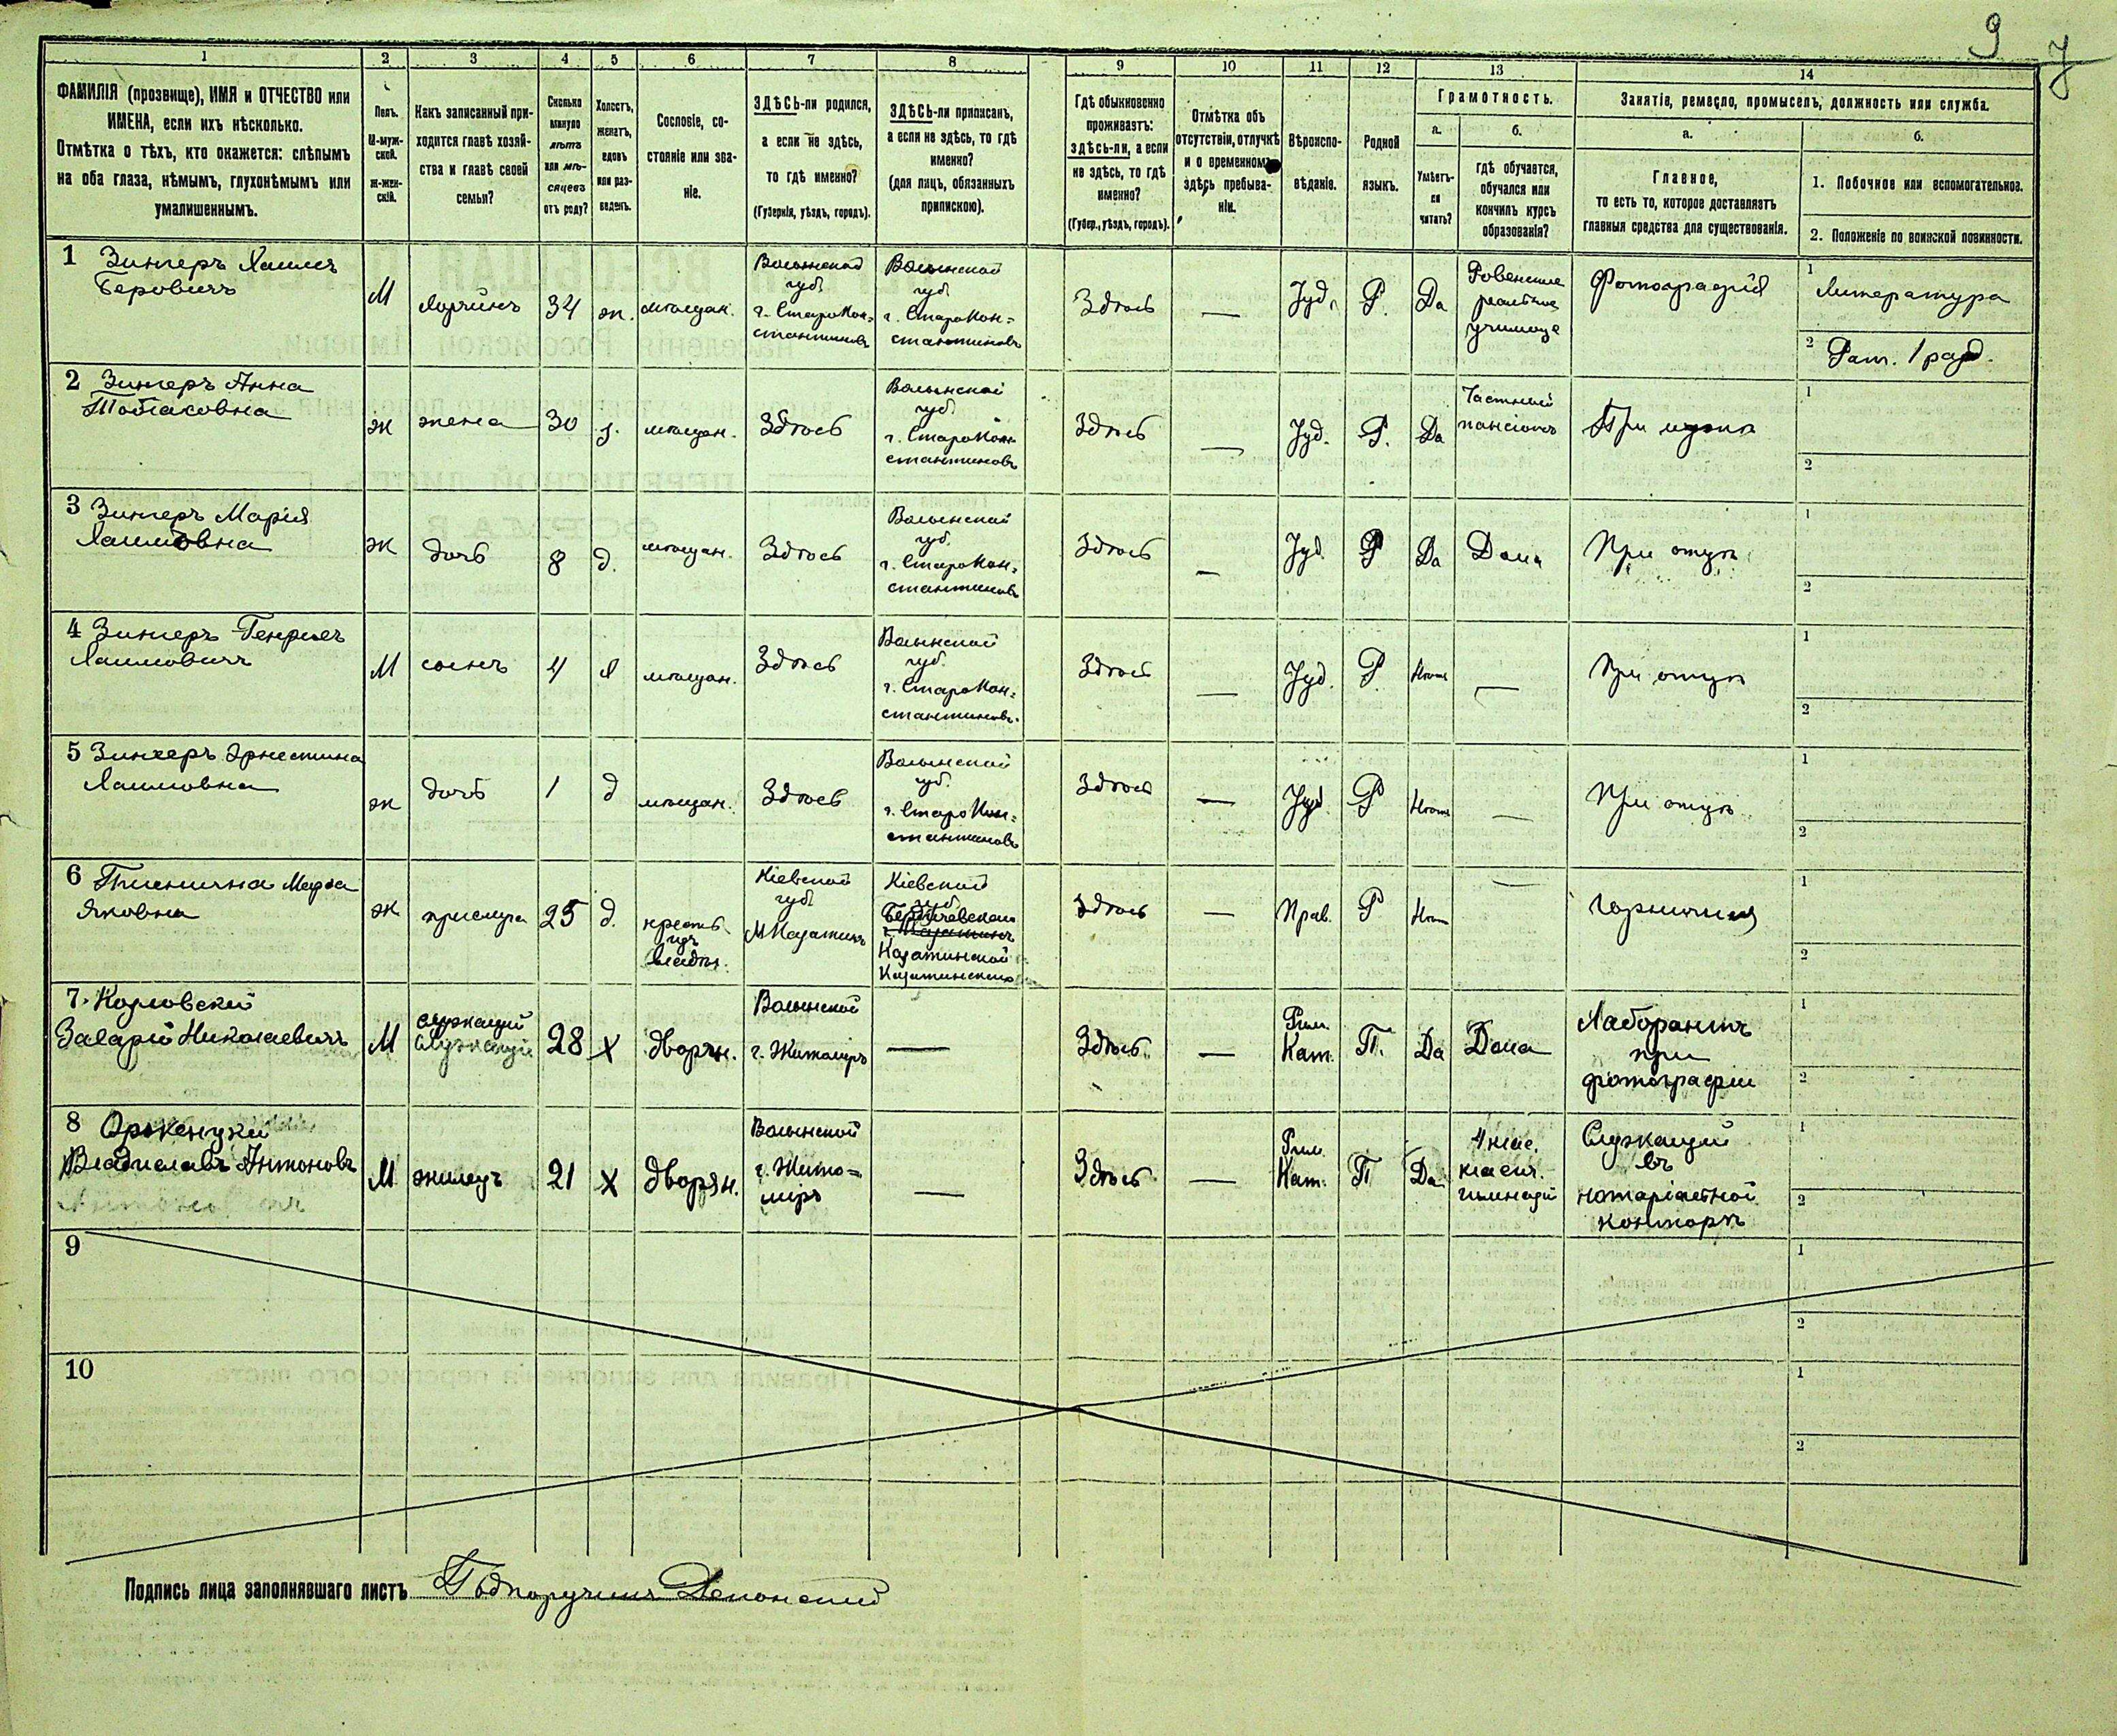 9
7
1
2
3
4
5
6
7
8
9
10
11
12
13
14
ФАМИЛІЯ (прозвище), ИМЯ и ОТЧЕСТВО или
ИМЕНА, если ихъ нѣсколько.
Отмѣтка о тѣхъ, кто окажется: слѣпымъ
на оба глаза, нѣмымъ, глухонѣмымъ или
умалишеннымъ.
Полъ.
М-муж-
ской.
Ж-жен-
скій.
Какъ записанный при-
ходится главѣ хозяй-
ства и главѣ своей
семьи?
Сколько
минуло
лѣтъ
или мѣ-
сяцевъ
отъ роду?
Холостъ,
женатъ,
вдовъ
или раз-
веденъ.
Сословіе, со-
стояніе или зва-
ніе.
ЗДѢСЬ-ли родился,
а если не здѣсь,
то гдѣ именно?
(Губернія, уѣздъ, городъ).
ЗДѢСЬ-ли приписанъ,
а если не здѣсь, то гдѣ
именно?
(для лицъ, обязанныхъ
припискою).
Гдѣ обыкновенно
проживаетъ:
здѣсь-ли, а если
не здѣсь, то гдѣ
именно?
(Губер., уѣздъ, городъ).
Отмѣтка объ
отсутствіи, отлучкѣ
и о временномъ
здѣсь пребыва-
ніи.
Вѣроиспо-
вѣданіе.
Родной
языкъ.
Грамотность.
а.
Умѣетъ-
ли
читать?
б.
гдѣ обучается,
обучался или
кончилъ курсъ
образованія?
Занятіе, ремесло, промыселъ, должность или служба.
а.
Главное,
то есть то, которое доставляетъ
главныя средства для существованія.
б.
1. Побочное или вспомогательное.
2. Положеніе по воинской повинности.
1 Зингеръ Хаимъ
Беровичъ
М
Хозяинъ
34
ж.
мѣщан.
Волынской
губ.
г. СтароКон=
стантиновъ
Волынской
губ.
г. СтароКон=
стантиновъ
Здѣсь
—
Іуд.
Р.
Да
Ровенское
реальное
училище
Фотографія
1 Литература
2 Рат. 1 разр.
2 Зингеръ Анна
ж
жена
30
з.
мѣщан.
Здѣсь
Волынской
губ.
г. СтароКон-
стантиновъ
Здѣсь
—
Іуд.
Р.
Да
Частный
пансіонъ
При мужѣ
1
2
3 Зингеръ Марія
Хаимовна
ж
дочь
8
д.
мѣщан.
Здѣсь
Волынской
губ.
г. СтароКон=
стантиновъ
Здѣсь
—
Іуд.
Р
Да
Дома
При отцѣ
1
2
4 Зингеръ Генрихъ
Хаимовичъ
М
сынъ
4
х
мѣщан.
Здѣсь
Волынской
губ.
г. СтароКон=
стантиновъ.
Здѣсь
—
Іуд.
Р
Нѣтъ
—
При отцѣ
1
2
5 Зингеръ Эрнестина
Хаимовна
ж
дочь
1
д
мѣщан.
Здѣсь
Волынской
губ.
г. СтароКон=
стантиновъ
Здѣсь
—
Іуд.
Р
Нѣтъ
—
При отцѣ
1
2
6 Пшенична Марѳа
Яковна
ж
прислуга
25
д.
крестья
изъ
владѣл.
Кіевской
губ.
М Козатинъ
Кіевской
губ.
Бердичевскаго
Козатинской
Козатинскаго
Здѣсь
—
Прав.
Р
Нѣтъ
—
Горничная
1
2
7. Козловскій
Захарій Николаевичъ
М
служащій
28
х
дворян.
Волынской
г. Житоміръ
—
Здѣсь.
—
Рим.
Кат.
П.
Да
Дома
Лаборантъ
при
фотографіи
1
2
8
Владиславъ Антоновъ
М
жилецъ
21
х
дворян.
Волынской
г. Жито=
міръ
—
Здѣсь
—
Рим.
Кат.
П
Да
4 клас.
класич.
гимназіи
Служащій
въ
нотаріальной
конторѣ
1
2
9
1
2
10
1
2
Подпись лица заполнявшаго листъ Подпоручикъ